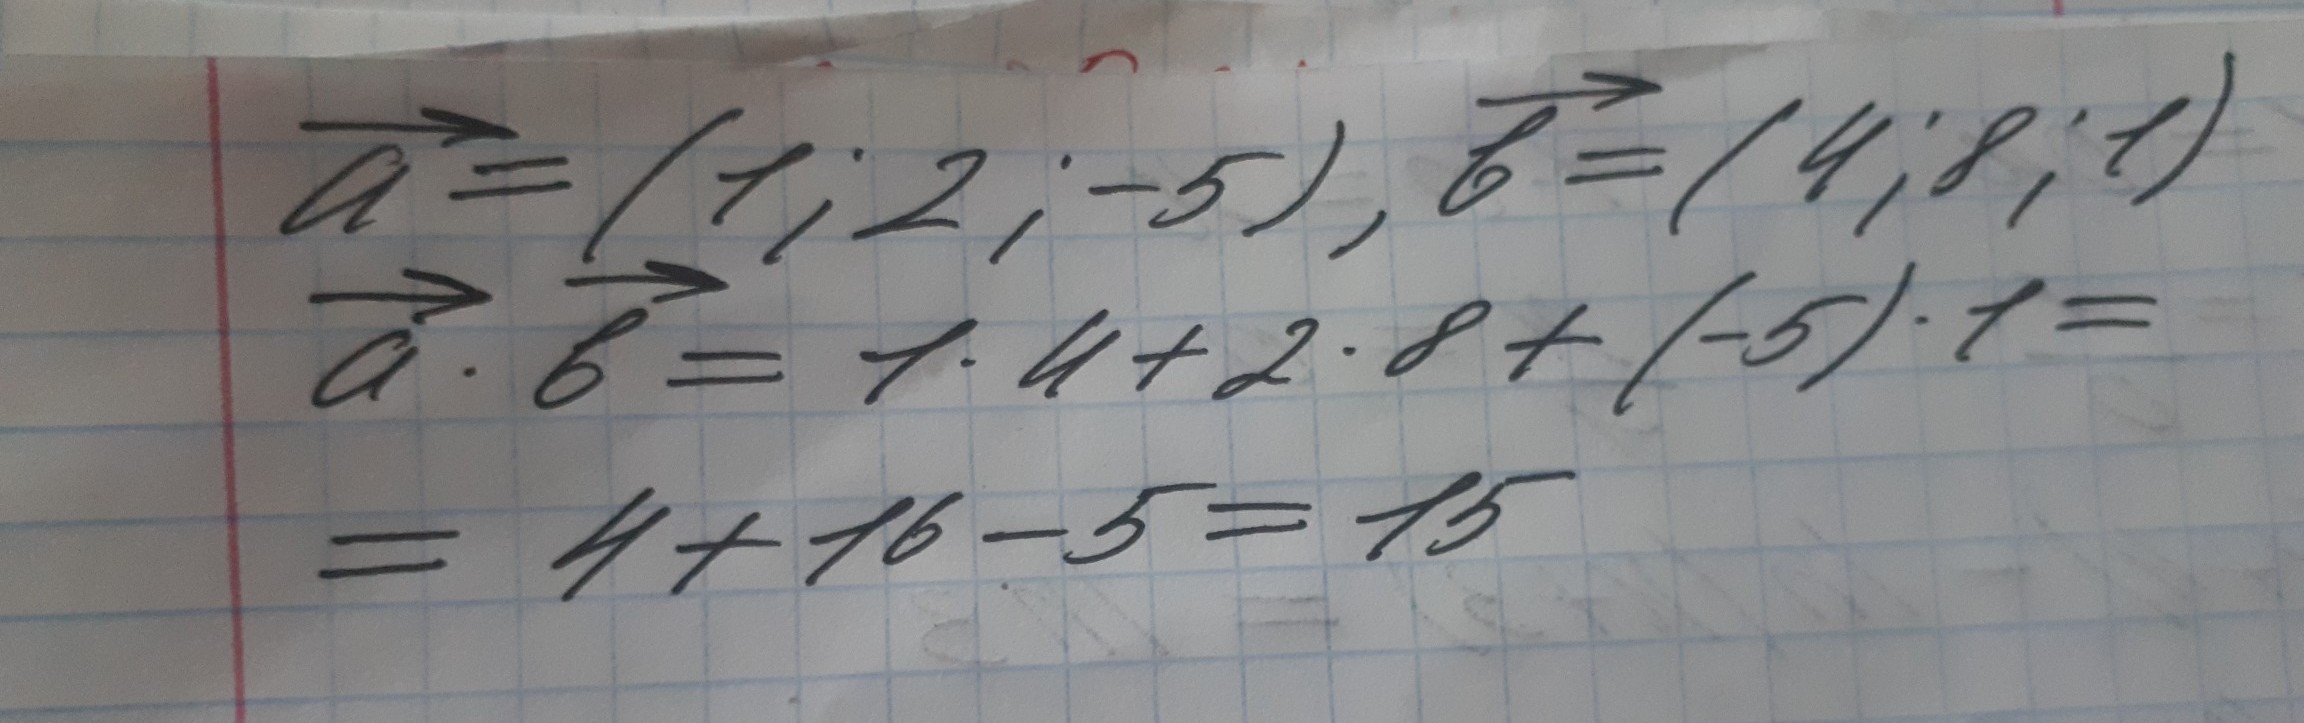 a⃗ = (1; 2; -5), b⃗ = (4; 8; 1)
a⃗ · b⃗ = 1 · 4 + 2 · 8 + (-5) · 1 =
= 4 + 16 - 5 = 15